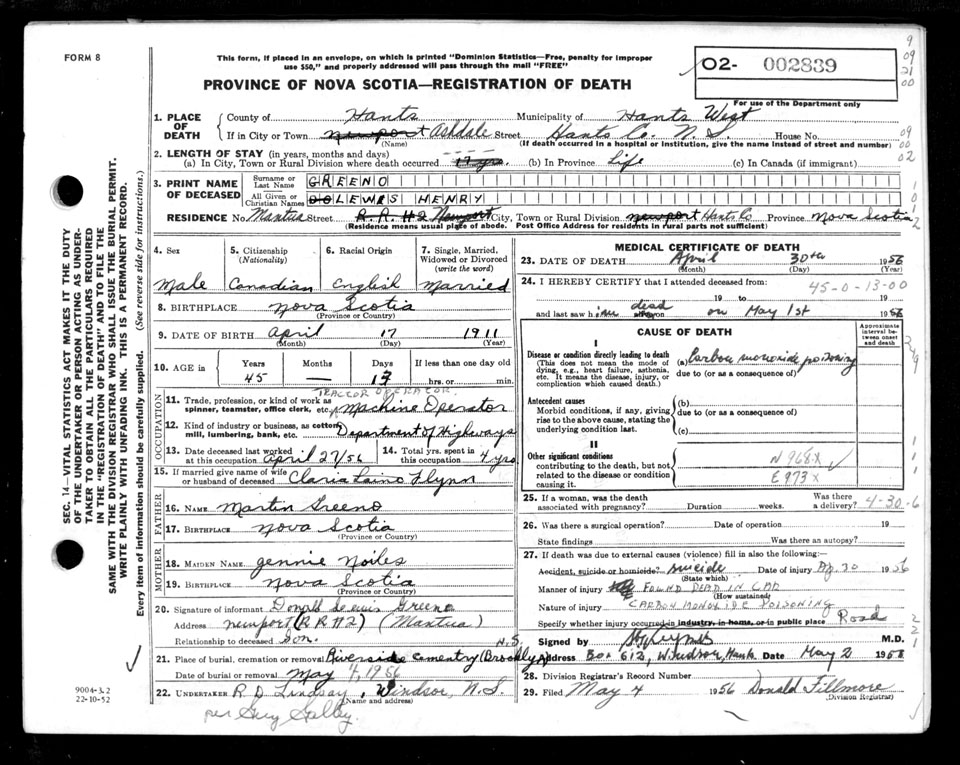 FORM 8
This form, if placed in an envelope, on which is printed "Dominion Statistics—Free, penalty for improper
use $50," and properly addressed will pass through the mail "FREE"
02- 002839
PROVINCE OF NOVA SCOTIA—REGISTRATION OF DEATH
For use of the Department only
9
09
21
00
1. PLACE OF DEATH
County of Hants Municipality of Hants West
If in City or Town Newport Ashdale Street Hants Co. N. S. House No.
(Name) (If death occurred in a hospital or institution, give the name instead of street and number)
09
00
02
2. LENGTH OF STAY (in years, months and days)
(a) In City, Town or Rural Division where death occurred 17 yrs. (b) In Province Life (c) In Canada (if immigrant)
3. PRINT NAME OF DECEASED
Surname or Last Name GREENO
All Given or Christian Names LEWIS HENRY
RESIDENCE No. Mantua Street R. R. #2 Newport City, Town or Rural Division Newport Hants Co Province Nova Scotia
(Residence means usual place of abode. Post Office Address for residents in rural parts not sufficient)
4. Sex
Male
5. Citizenship
(Nationality)
Canadian
6. Racial Origin
English
7. Single, Married, Widowed or Divorced
(write the word)
Married
8. BIRTHPLACE Nova Scotia
(Province or Country)
9. DATE OF BIRTH April 17 1911
(Month) (Day) (Year)
10. AGE in
Years Months Days If less than one day old
45 — 13 hrs. or min.
OCCUPATION
TRACTOR OPERATOR
11. Trade, profession, or kind of work as
spinner, teamster, office clerk, etc. Machine Operator
12. Kind of industry or business, as cotton
mill, lumbering, bank, etc. Department of Highways
13. Date deceased last worked
at this occupation April 27/56
14. Total yrs. spent in
this occupation 4 yrs
15. If married give name of wife
or husband of deceased Flynn
FATHER
16. NAME Martin Greeno
17. BIRTHPLACE Nova Scotia
(Province or Country)
MOTHER
18. MAIDEN NAME Jennie Noiles
19. BIRTHPLACE Nova Scotia
(Province or Country)
20. Signature of informant Donald Lewis Greeno
Address Newport (R R #2) (Mantua)
Relationship to deceased Son.
N.S.
21. Place of burial, cremation or removal Riverside Cemetry (Brooklyn)
Date of burial or removal May 4, 1956
22. UNDERTAKER R. D. Lindsay, Windsor, N. S.
(Name and address)
per Guy
MEDICAL CERTIFICATE OF DEATH
23. DATE OF DEATH April 30th 1956
(Month) (Day) (Year)
24. I HEREBY CERTIFY that I attended deceased from:
45-0-13-00
19 to 19
and last saw h dead on May 1st 1956
CAUSE OF DEATH
Approximate interval between onset and death
I
Disease or condition directly leading to death
(This does not mean the mode of dying, e.g., heart failure, asthenia, etc. It means the disease, injury, or complication which caused death.)
(a) Carbon monoxide poisoning
due to (or as a consequence of)
Antecedent causes
Morbid conditions, if any, giving rise to the above cause, stating the underlying condition last.
(b)
due to (or as a consequence of)
(c)
II
Other significant conditions
contributing to the death, but not related to the disease or condition causing it.
N 968.X
E 973 X
25. If a woman, was the death
associated with pregnancy? Duration weeks. Was there
a delivery? 4-30-6
26. Was there a surgical operation? Date of operation 19
State findings Was there an autopsy?
27. If death was due to external causes (violence) fill in also the following:—
Accident, suicide or homicide? suicide Date of injury Ap. 30 1956
(State which)
Manner of injury FOUND DEAD IN CAR
(How sustained)
Nature of injury CARBON MONOXIDE POISONING
Specify whether injury occurred in industry, in home, or in public place Road
Signed by M.D.
Address Box 612, Windsor, Hants Date May 2 1956
28. Division Registrar's Record Number
29. Filed May 4 1956 Donald Fillmore
(Division Registrar)
SEC. 14—VITAL STATISTICS ACT MAKES IT THE DUTY
OF THE UNDERTAKER OR PERSON ACTING AS UNDER-
TAKER TO OBTAIN ALL THE PARTICULARS REQUIRED
IN THE "REGISTRATION OF DEATH" AND TO FILE THE
SAME WITH THE DIVISION REGISTRAR WHO SHALL ISSUE THE BURIAL PERMIT.
WRITE PLAINLY WITH UNFADING INK. THIS IS A PERMANENT RECORD.
Every item of information should be carefully supplied. (See reverse side for instructions.)
9004-3.2
22-10-52